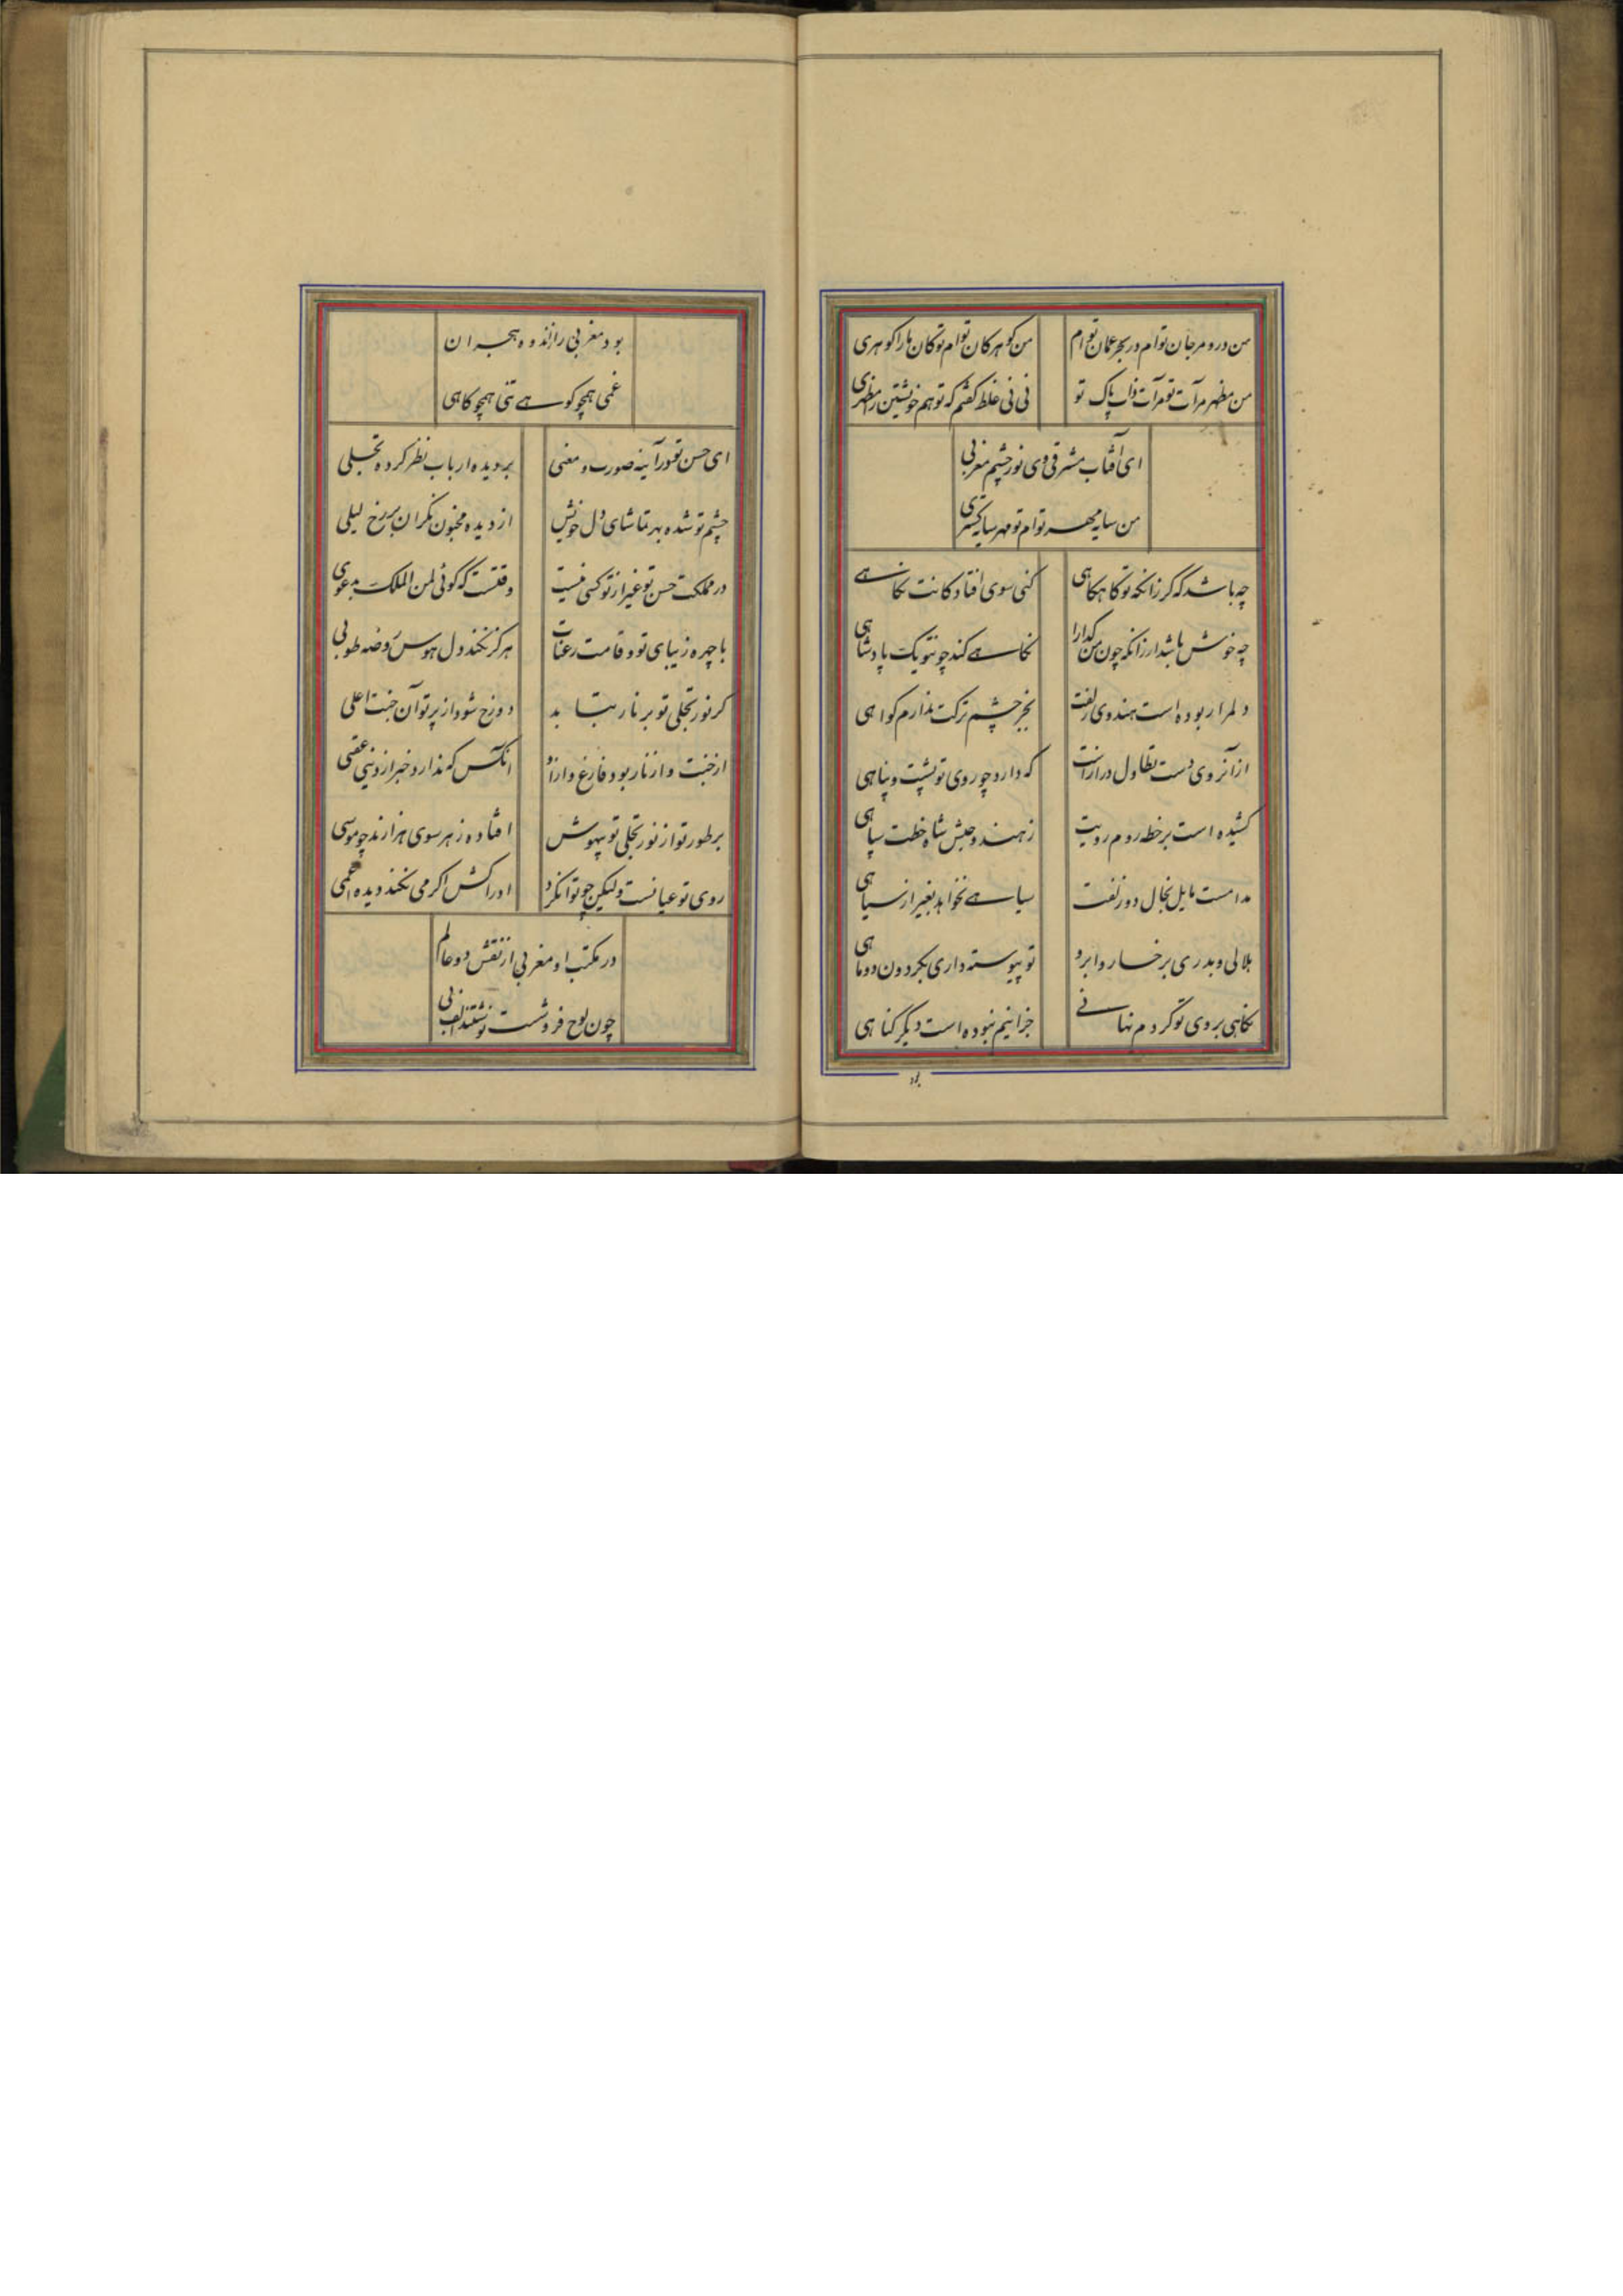 من در و مرجان توام در بحر عمان توام
من گوهر کان توام تو کان ما را گوهری
من مظهر مرآت تو مرآت ذات پاک تو
نی نی غلط گفتم که تو هم خویشتن را مظهری
ای آفتاب مشرقی وی نور چشم مغربی
من سایه مهر توام تو مهر سایه گستری
چه باشد که گر زانکه تو گاهگاهی
کنی سوی افتادگانت نگاهی
چه خوش باشد ار زانکه چون من گدا را
نگاهی کند چو تو یک پادشاهی
دلم را ربوده است هندوی زلفت
بجز چشم ترکت ندارم گواهی
از آنروی دست تطاول دراز است
که دارد چو روی تو پشت و پناهی
کشیده است بر خطه روم رویت
ز هند و حبش شاه خطت سپاهی
مدامست مایل بخال دو زلفت
سیاهی نخواهد بغیر از سیاهی
هلالی و بدری بر خسار و ابرو
تو پیوسته داری بگردون دو ماهی
نگاهی بروی تو کردم نهانی
جز اینم نبوده است دیگر گناهی
بود
بود مغربی را ز اندوه هجران
غمی همچو کوهی تنی همچو کاهی
ای حسن تو در آینه صورت و معنی
بر دیده ارباب نظر کرده تجلی
چشم تو شده بهر تماشای دل خویش
از دیده مجنون نگران بر رخ لیلی
در مملکت حسن تو غیر از تو کسی نیست
وقتست که گوئی لمن الملک بدعوی
با چهره زیبای تو و قامت رعنات
هرگز نکند دل هوس روضه طوبی
گر نور تجلی تو بر نار بتابد
دوزخ شود از پرتو آن جنت اعلی
از جنت و از نار بود فارغ و آزاد
آنکس که ندارد خبر از دنیی عقبی
بر طور تو از نور تجلی تو بیهوش
افتاده ز هر سوی هزارند چو موسی
روی تو عیانست ولیکن چو توان کرد
ادراکش اگر می نکند دیده اعمی
در مکتب او مغربی از نقش دو عالم
چون لوح فروشست نوشتند الف بی